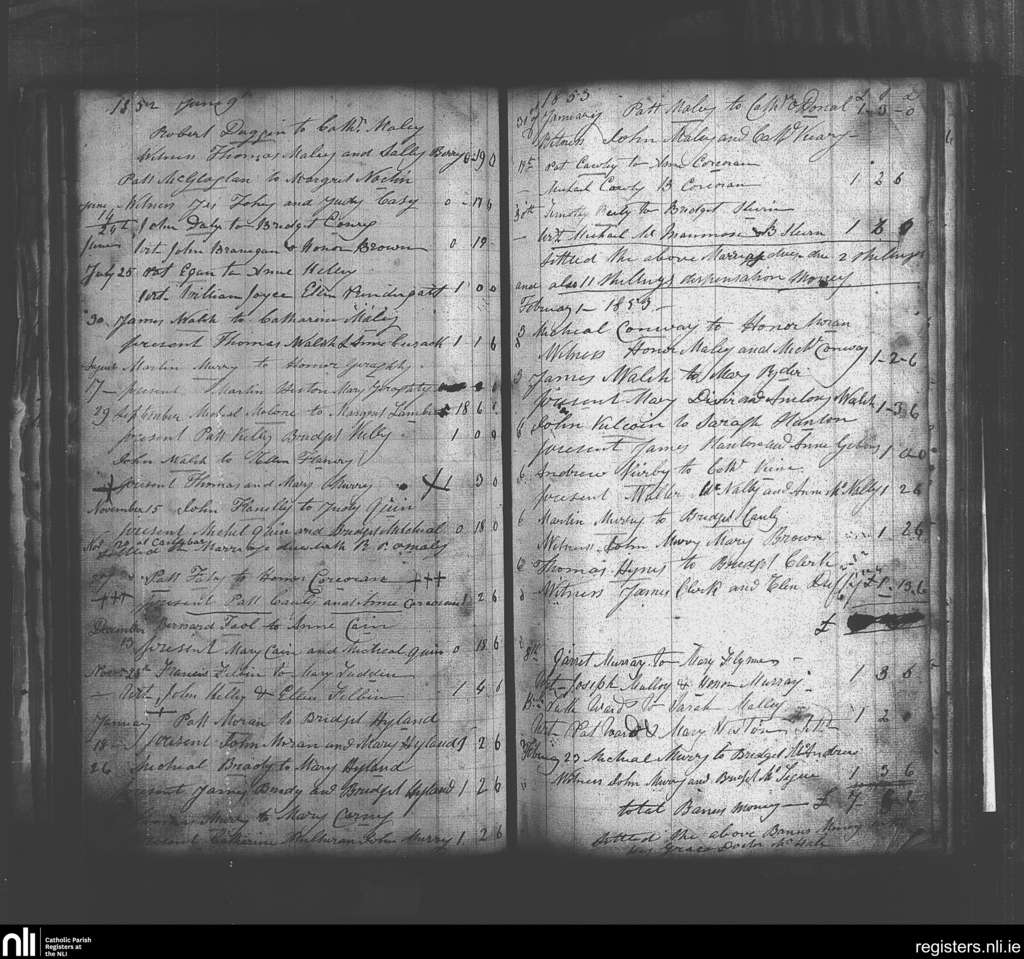 1852 June 9th
Robert Duggin to Cathr. Maley
Witness Thomas Maley and Sally Berry 0-19 0
Patt McGloglan to Margret Noclin
June Witness Jas Fohey and Judy Casy 0-17 6
14
20th John Daly to Bridget Conry
June Wit. John Branigan & Honor Brown 0 19 -
July 25 Pat Egan to Anne Heley
Wit. William Joyce Ellen Prindergast 1 0 0
30 James Walsh to Catharine Maley
present Thomas Walsh & Anne Cusack 1-1 6
August Martin Murry to Honor Geraghty
17 - present Martin Heston Mary Geraghty
29 September Micheal Malone to Margret Lambert 18 6
present Patt Kelly Bridget Kelly 1 0 0
John Walsh to Ellen Flanery
present Thomas and Mary Murry 1 3 0
November 15 John Flanelly to Judy Quin
present Michel Quin and Bridget Micheal 0 18 0
Nov 20 at Castlebar
Settled the Marriage dues with R. P. Omaley
Patt Fahy to Honor Corcoran +++
+++ present Patt Cauly and Anne Corcoran 1 2 6
December Bernard Fool to Anne Cain
13 present Mary Cain and Micheal Quin 0 18 6
Novr. 28th Francis Filbin to Mary Fadden
- Wit. John Kelly & Ellen Filbin 1 4 6
January Patt Moran to Bridget Hyland
18 - present John Moran and Mary Hyland 1 2 6
26 Micheal Brady to Mary Hyland
present James Brady and Bridget Hyland 1 2 6
Murry to Mary Carny
present Catharine Mulheran John Murry 1 2 6
1853 £ S D
31 January Patt Maley to Cathr. O Donal 1-3-0
Witness John Maley and Cathr. Keary
Pat Cawley to Anne Corcoran
- Michael Cawly B Corcoran 1 2 6
30th Timothy Reily to Bridget
- Wit. Michael Mc Manmon & B 1
Settled the above Marriage dues due 2 Shillings
and also 11 Shillings dispensation Money
February 1853
3 Micheal Conway to Honor Moran
8 Witness Honor Maley and Michl. Conway 1-2-6
3 James Walsh to Mary Ryder
present Mary Diver and Antony Walsh 1-3 6
6 John Kilcoin to Saragh Stanton
present James Stanton and Anne 1 0 0
6 Andrew Kirby to Cathr. Kine
present Walter McNally and Ann McNally 1 2 6
6 Martin Murry to Bridget Cauly
Witness John Murry Mary Brown 1-2 6
6 Thomas Hynes to Bridget Clerk
8 Witness James Clerk and Ellen Duffy £1 1 6
£
8th Jarret Murray to Mary Flynn -
Wit. Joseph Malloy & Honor Murray 1 3 6
Path Ward to Sarah Malley
Wit. Pat Ward & Mary Heston 1 2
February 23 Micheal Murry to Bridget McAndrew
" Witness John Murry and Bridget McTigue 1 3 6
total Banns Money - £ 7 6 2
Settled the above Banns Money
His Grace Doctor McHale
nli
Catholic Parish
Registers at
the NLI
registers.nli.ie